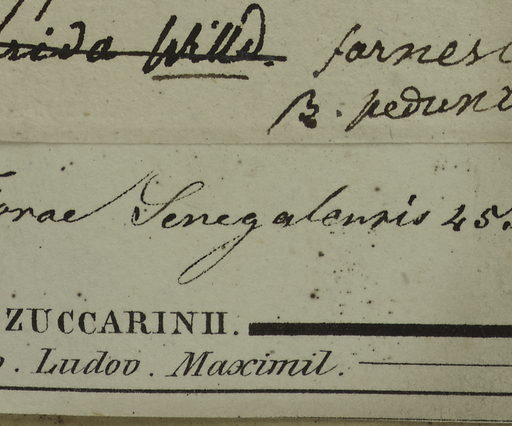 rida Willd. farnesi
β. pedun
orae Senegalensis 45.
ZUCCARINII.
. Ludov. Maximil.